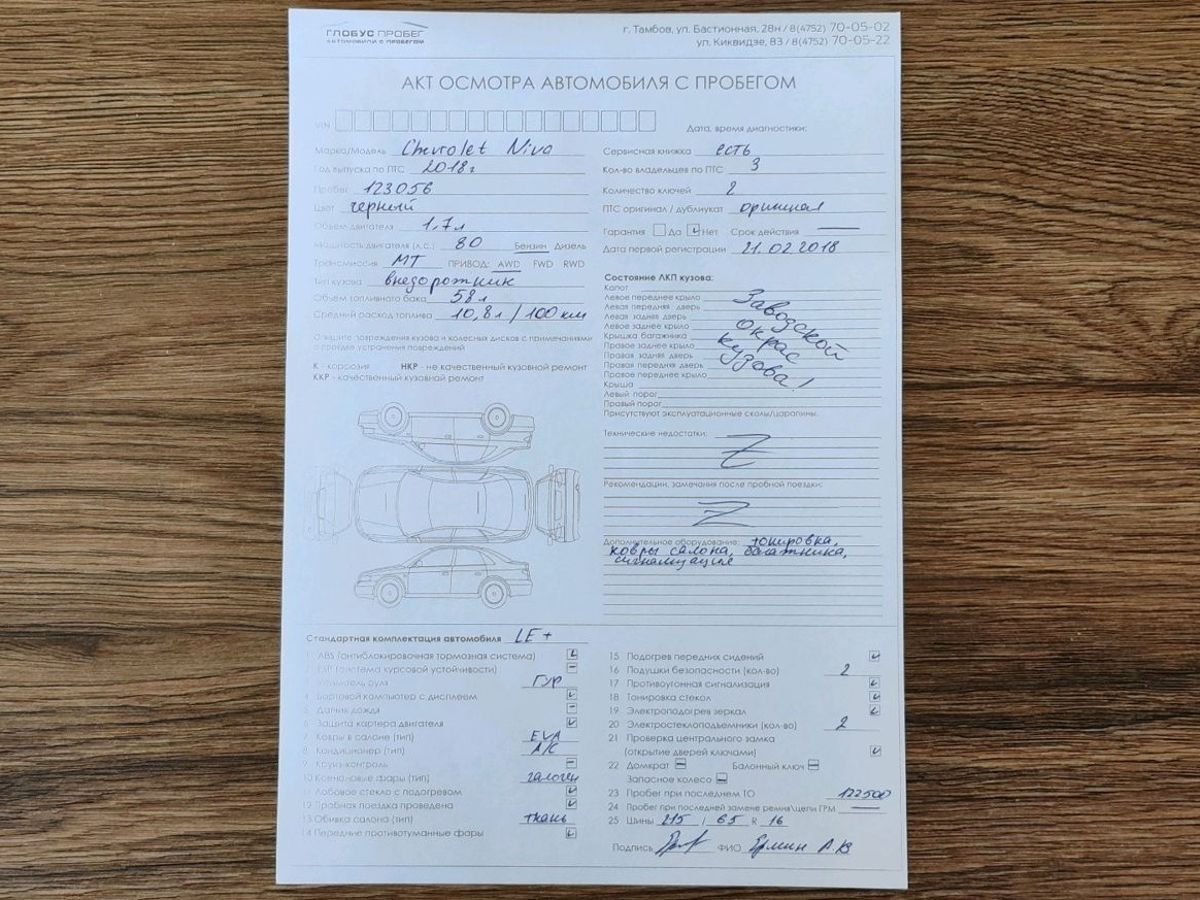 ГЛОБУС ПРОБЕГ
АВТОМОБИЛИ С ПРОБЕГОМ
г. Тамбов, ул. Бастионная, 28н / 8(4752) 70-05-02
ул. Киквидзе, 83 / 8(4752) 70-05-22
АКТ ОСМОТРА АВТОМОБИЛЯ С ПРОБЕГОМ
VIN
Дата, время диагностики:
Марка/Модель Chevrolet Niva
Год выпуска по ПТС 2018г
Пробег 123056
Цвет черный
Объем двигателя 1,7л
Мощность двигателя (л.с.) 80 Бензин Дизель
Трансмиссия МТ ПРИВОД: AWD FWD RWD
Тип кузова внедорожник
Объем топливного бака 58л
Средний расход топлива 10,8л/100км
Опишите повреждения кузова и колесных дисков с примечаниями
о порядке устранения повреждений
К - коррозия НКР - не качественный кузовной ремонт
ККР - качественный кузовной ремонт
Сервисная книжка есть
Кол-во владельцев по ПТС 3
Количество ключей 2
ПТС оригинал / дубликат оригинал
Гарантия Да Нет Срок действия —
Дата первой регистрации 21.02.2018
Состояние ЛКП кузова:
Капот
Левое переднее крыло
Левая передняя дверь
Левая задняя дверь
Левое заднее крыло
Крышка багажника
Правое заднее крыло
Правая задняя дверь
Правая передняя дверь
Правое переднее крыло
Крыша
Левый порог
Правый порог
Заводской
окрас
кузова!
Присутствуют эксплуатационные сколы/царапины.
Технические недостатки:
Z
Рекомендации, замечания после пробной поездки:
Z
Дополнительное оборудование: тонировка,
ковры салона, багажника,
сигнализация
Стандартная комплектация автомобиля LE+
1 ABS (антиблокировочная тормозная система)
ESP (система курсовой устойчивости)
Усилитель руля ГУР
4 Бортовой компьютер с дисплеем
5 Датчик дождя
6 Защита картера двигателя
7 Ковры в салоне (тип) EVA
8 Кондиционер (тип) A/C
9 Круиз-контроль
10 Ксеноновые фары (тип) галоген
11 Лобовое стекло с подогревом
12 Пробная поездка проведена
13 Обивка салона (тип) ткань
14 Передние противотуманные фары
15 Подогрев передних сидений
16 Подушки безопасности (кол-во) 2
17 Противоугонная сигнализация
18 Тонировка стекол
19 Электроподогрев зеркал
20 Электростеклоподъемники (кол-во) 2
21 Проверка центрального замка
(открытие дверей ключами)
22 Домкрат Балонный ключ
Запасное колесо
23 Пробег при последнем ТО 122500
24 Пробег при последней замене ремня\цепи ГРМ —
25 Шины 215 / 65 R 16
Подпись ФИО Ермин А.В